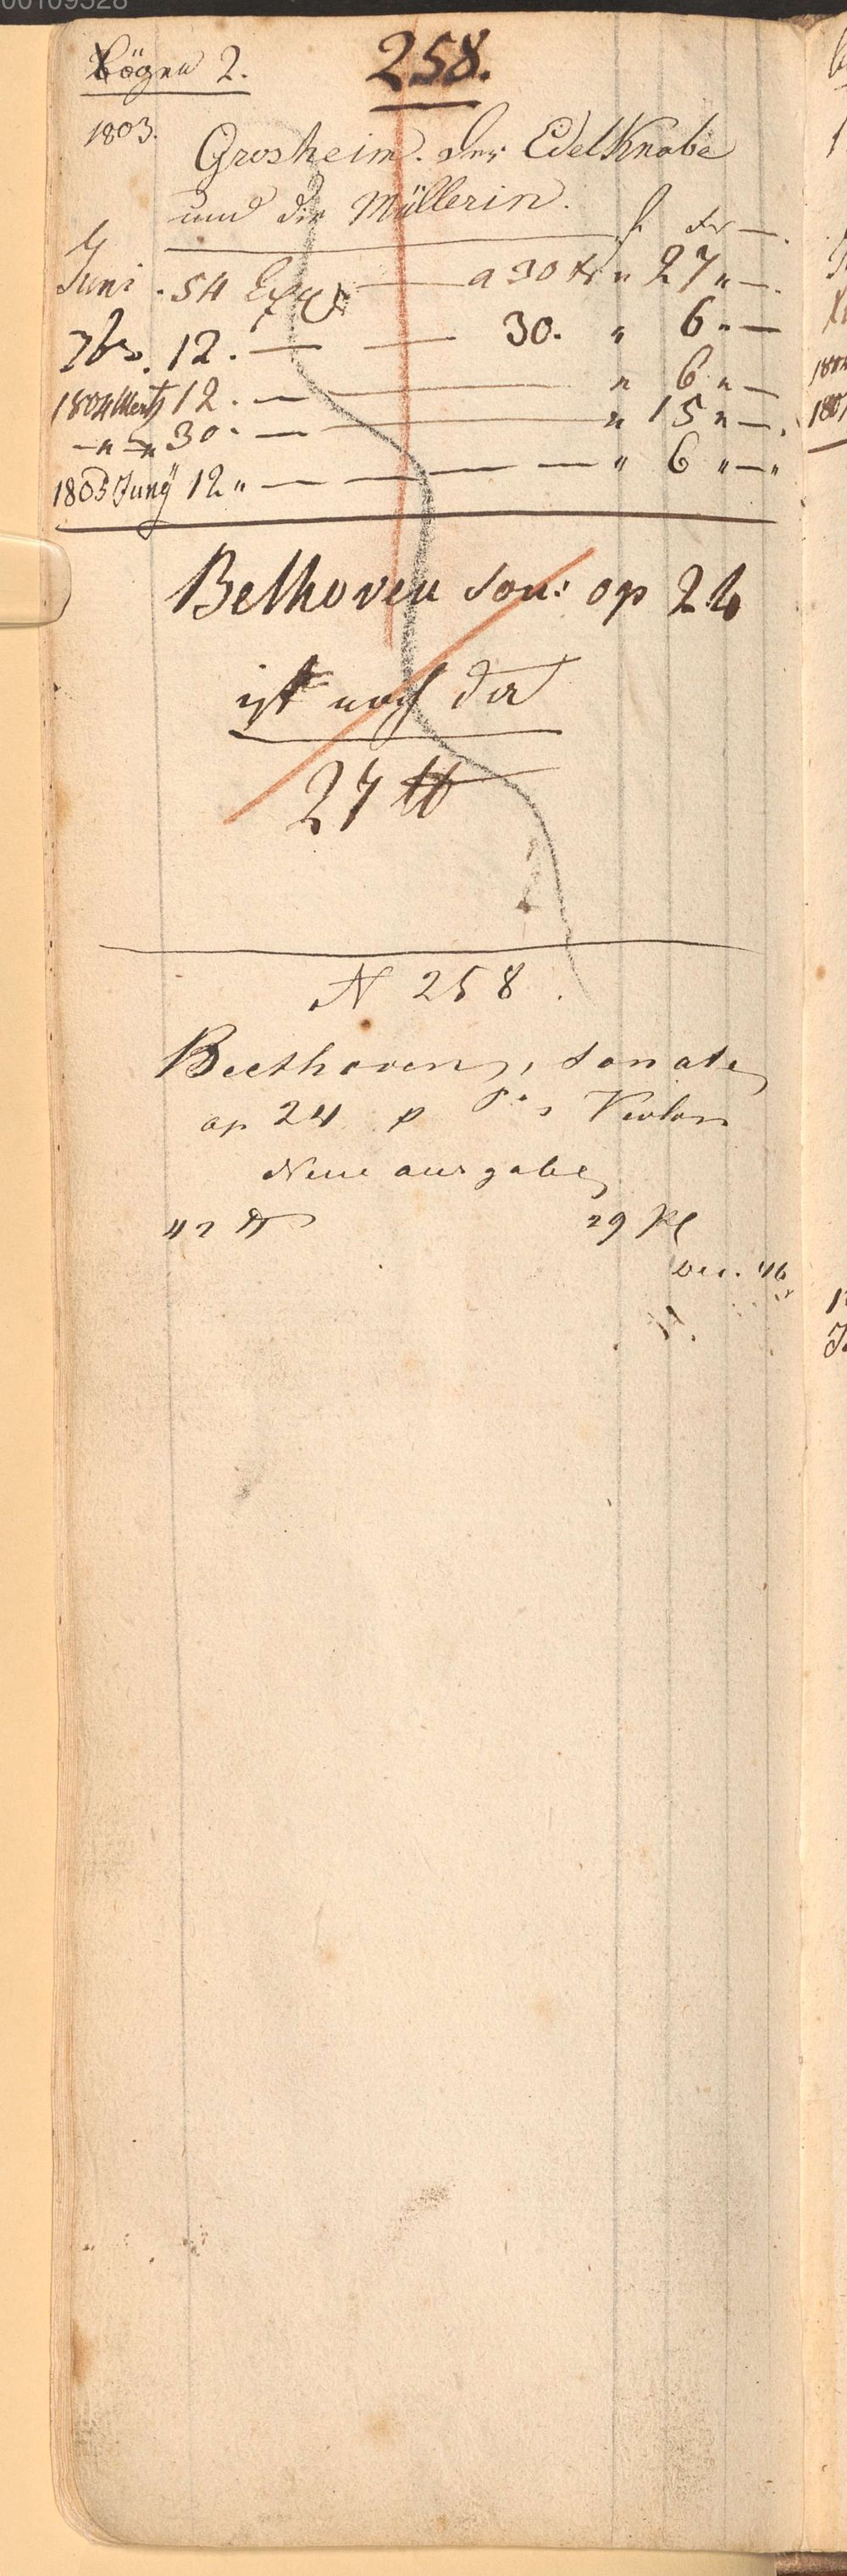 Bögen 2.
258.
1803. Grosheim. Der EdelKnabe
und die Müllerin.
f. Xr —.
Juni . 54 Expl — a 30 Xr „ 27 „ —.
7br. 12. — — 30. „ 6 „ —
1804 Mertz 12. — — „ 6 „ —
— „ — „ 30. — — „ 15 „ —.
1805 Junÿ 12 „ — — — — „ 6 „ — „
Bethoven Son: op 24
ist noch da
27 tt
N 258.
Beethoven, Sonate
op 24 p P. , Violon
Neue ausgabe
42 tt 29 Pl
Dec. 46